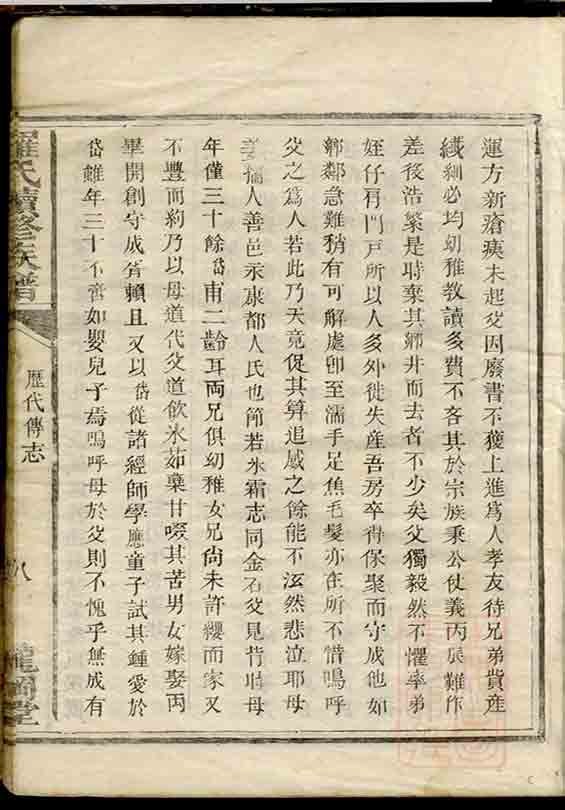 運方新瘡痍未起父因廢書不獲上進爲人孝友待兄弟貲產
纖細必均幼雅教讀多費不吝其於宗族秉公仗義丙辰難作
差後浩繁是時棄其鄉井而去者不少矣父獨毅然不懼率弟
姪仔肩門戸所以人多外徙失産吾房卒得保聚而守成他如
鄉鄰急難稍有可解處卽至濡手足焦毛髮亦在所不惜嗚呼
父之爲人若此乃天竟促其算追感之餘能不泫然悲泣耶母
姜孺人善邑永康都人氏也簡若氷霜志同金石父見背旹母
年僅三十餘岱甫二齡耳兩兄俱幼雅女兄尙未許纓而家又
不豐而約乃以母道代父道飲氷茹蘗甘啜其苦男女嫁娶丙
畢開創守成胥賴且又以岱從諸經師學應童子試其鍾愛於
岱雖年三十不啻如嬰兒子焉嗚呼母於父則不愧乎無成有
羅氏續修族譜
歷代傳志
八
龍岡堂